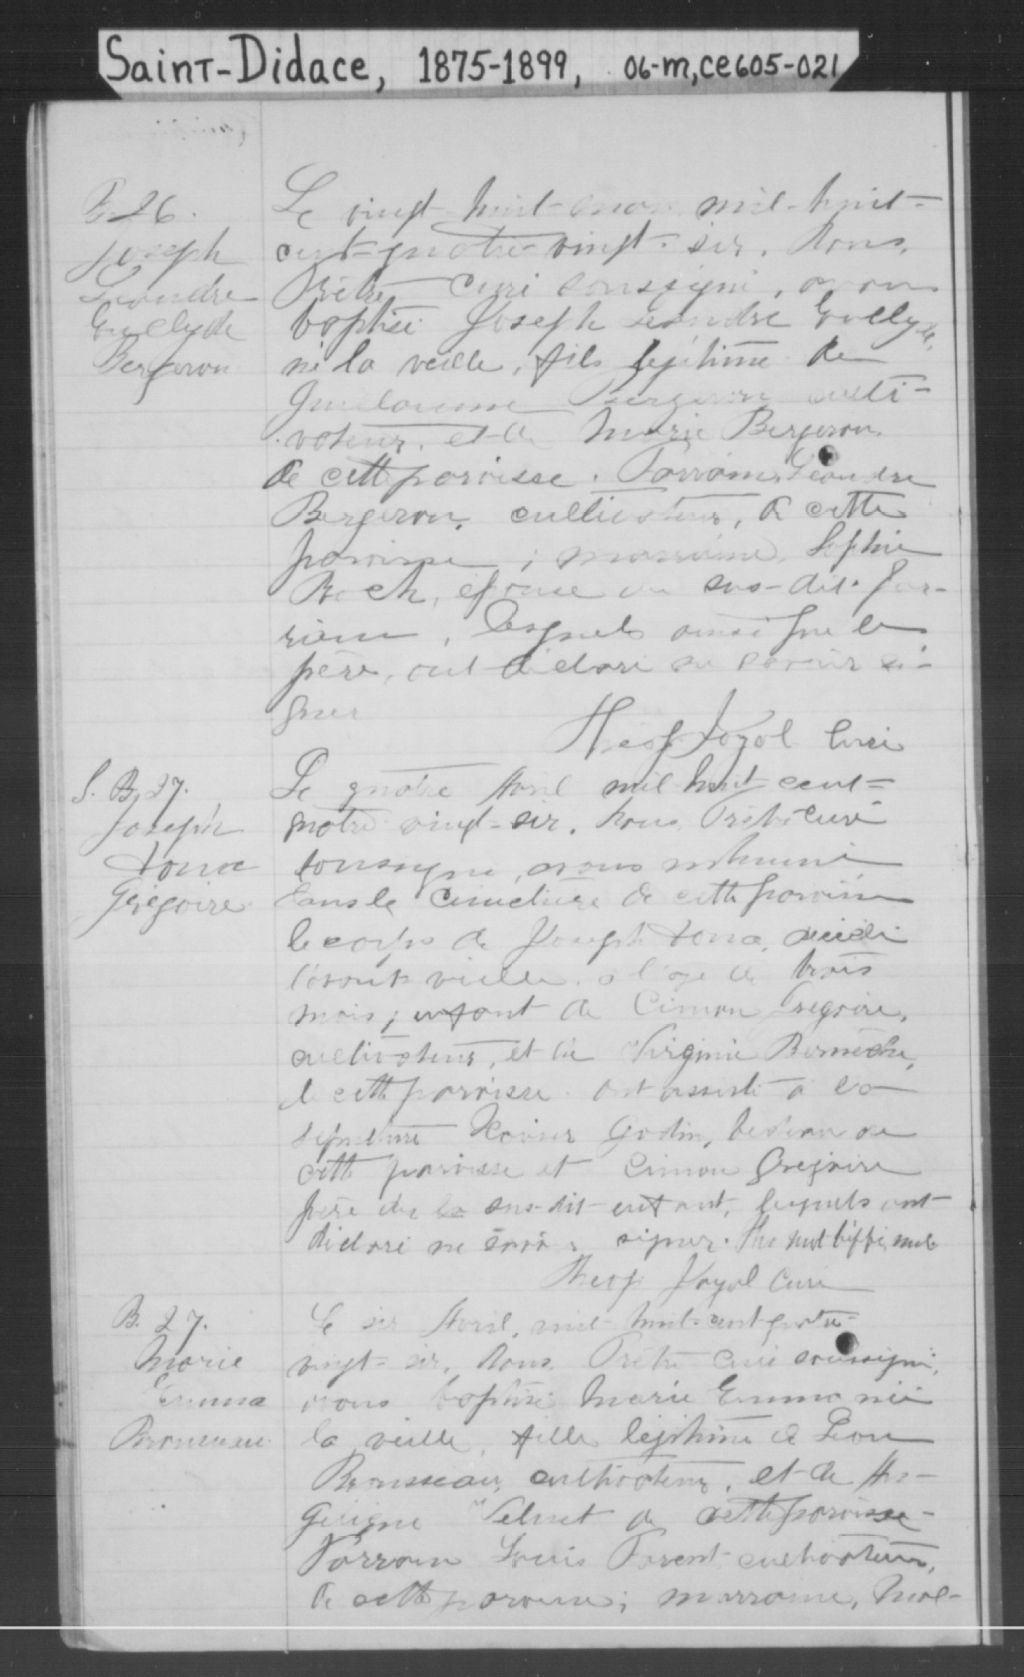 Saint-Didace, 1875-1899, 06-m,ce605-021
B 26.
Joseph
Léandre
Euclyde
Bergeron
Le vingt-huit mars mil-huit-
cent-quatre-vingt-six. Nous,
Prêtre Curé soussigné, avons
baptisé Joseph Léandre Euclyde,
né la veille, fils légitime de
Bergeron culti-
vateur, et de Marie Bergeron
de cette paroisse. Parrain, Léandre
Bergeron, cultivateur, de cette
paroisse; marraine, Sophie
épouse du sus-dit par-
rain, lesquels ainsi que le
père, ont déclaré ne savoir si-
gner
Curé
S. B. 27.
Joseph
Grégoire
Le quatre Avril mil-huit cent-
quatre-vingt-six. Nous Prêtre Curé
soussigné, avons inhumé
dans le cimetière de cette paroisse
le corps de Joseph décédé
l'avant-veille à l'âge de trois
mois; enfant de Cimon Grégoire,
cultivateur, et de Virginie
de cette paroisse. Ont assisté à la
sépulture Xavier Godin, bedeau de
cette paroisse et Cimon Grégoire
père du sus-dit enfant, lesquels ont
déclaré ne savoir signer. Un mot biffé nul
Curé
B. 27.
Marie
Emma
Brousseau
Le six Avril, mil-huit-cent quatre-
vingt-six, Nous Prêtre Curé soussigné,
avons baptisé Marie Emma née
la veille, fille légitime de Léon
Brousseau, cultivateur, et de
de cette paroisse-
Parrain Louis Parent cultivateur,
de cette paroisse; marraine,